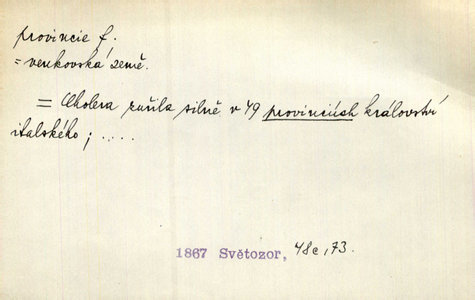 provincie f.
= venkovská země.
= Cholera zuřila silně v 49 provinciích království
italského; ....
1867 Světozor, 48c, 73.